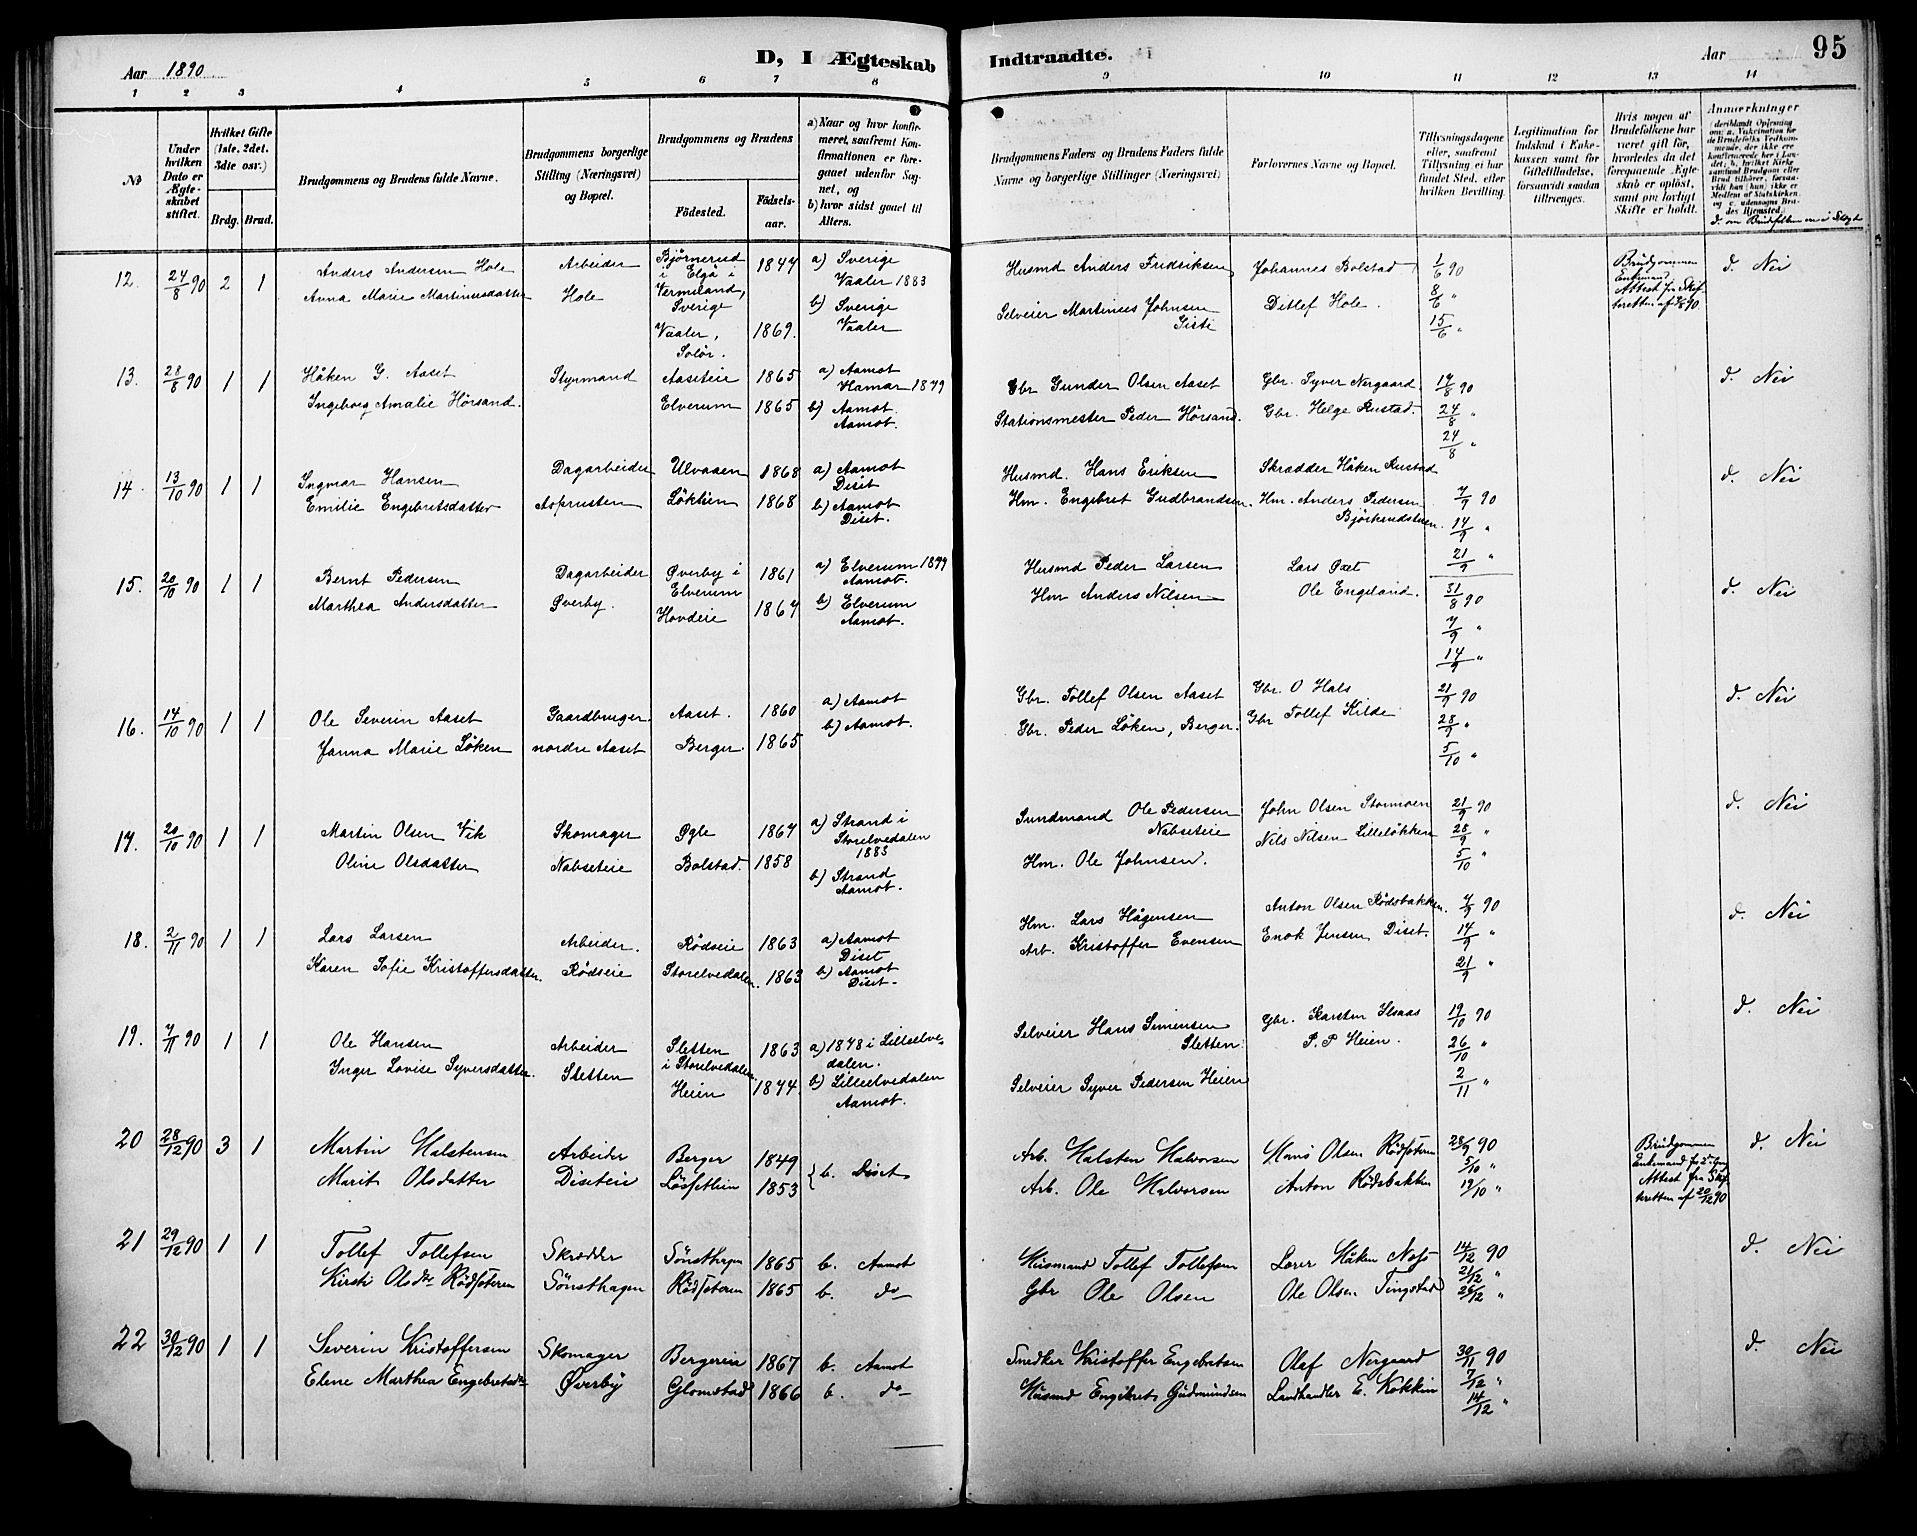 Aar 1890
D, I Ægteskab Indtraadte.
Aar 95
1 2 3 4 5 6 7 8 9 10 11 12 13 14
№
Under hvilken Dato er Ægteskabet stiftet.
Hvilket Gifte (1ste, 2det, 3dte osv.)
Brdg. Brud.
Brudgommens og Brudens fulde Navne.
Brudgommens borgerlige Stilling (Næringsvei) og Bopæl.
Brudgommens og Brudens
Födested. Födselsaar.
a) Naar og hvor konfirmeret, saafremt Konfirmationen er foregaaet udenfor Sognet, og
b) hvor sidst gaaet til Alters.
Brudgommens Faders og Brudens Faders fulde Navne og borgerlige Stillinger (Næringsvei)
Forlovernes Navne og Bopæl.
Tillysningsdagene eller, saafremt Tillysning ei har fundet Sted, efter hvilken Bevilling.
Legitimation for Indskud i Enkekassen samt for Giftetilladelse, forsaavidt saadan tiltrænges.
Hvis nogen af Brudefolkene har været gift før, hvorledes da det foregaaende Ægteskab er oplöst, samt om lovligt Skifte er holdt.
Anmærkninger
d. om Brudefolkene er i Slægt
12. 24/8 90 2 1
Anders Andersen Hole
Anna Marie Martinusdatter
Arbeider
Hole
Bjørnerud i Elgå i Vermeland, Sverige 1847
Vaaler, Solör. 1869.
a) Sverige
Vaaler 1883
b) Sverige
Vaaler
Husmd Anders Fredriksen
Selveier Martinus Johnsen
Johannes Bolstad
Ditlef Hole.
1/6 90
8/6 "
15/6 "
Brudgommen
Enkemand
Attest fra Skifteretten
d. Nei
13. 28/8 90 1 1
Håken G. Aaset
Ingeborg Amalie Hörsand.
Styrmand
Aaseteie 1865
Elverum 1865
a) Aamot
Hamar 1879
b) Aamot.
Aamot.
Gbr Gunder Olsen Aaset
Stationsmester Peder Hörsand.
Gbr. Syver Nergaard
Gbr. Helge Rustad.
17/8 90
24/8 "
24/8 "
d. Nei
14. 13/10 90 1 1
Ingmar Hansen
Emilie Engebretsdatter
Dagarbeider
Asprusten
Ulvaaen 1868
Löktien 1868
a) Aamot
Diset
b) Aamot
Diset.
Husmd. Hans Eriksen
Hm. Engebret Gudbrandsen.
Skrædder Håken Rustad
Hm. Anders Pedersen
7/9 90
14/9 "
21/9 "
d. Nei
15. 20/10 90 1 1
Bernt Pedersen
Marthea Andersdatter
Dagarbeider
Øverby.
Øverby i Elverum 1861
Hovdeie 1864
a) Elverum 1877
Aamot.
b) Elverum
Aamot.
Husmd Peder Larsen
Hm Anders Nilsen
Lars Øxet
Ole Engeland.
31/8 90
7/9 "
14/9 "
d. Nei
16. 14/10 90 1 1
Ole Severin Aaset
Janna Marie Löken
Gaardbruger
nordre Aaset
Aaset. 1860
Berger. 1865
a) Aamot
b) Aamot.
Gbr. Tollef Olsen Aaset
Gbr. Peder Löken, Berger.
Gbr. O Hals
Gbr Tollef Kilde
21/9 90
28/9 "
5/10 "
d. Nei
17. 20/10 90 1 1
Martin Olsen Vik
Oline Olsdatter
Skomager
Nabseteie
Øgle 1867
Bolstad. 1858
a) Strand i
Storelvedalen
1883
b) Strand
Aamot.
Sundmand Ole Pedersen
Nabseteie
Hm. Ole Johnsen.
John Olsen Stormoen
Nils Nilsen Lilleløkken
21/9 90
28/9 "
5/10 "
d. Nei
18. 2/11 90 1 1
Lars Larsen
Karen Sofie Kristoffersdatter.
Arbeider.
Rödseie
Rödseie 1863
Storelvedalen. 1863
a) Aamot
Diset
b) Aamot
Diset.
Hm. Lars Hågensen
Arb. Kristoffer Evensen
Anton Olsen Rödsbakken.
Enok Jensen Diset.
7/9 90
14/9 "
21/9 "
d. Nei
19. 7/11 90 1 1
Ole Hansen
Inger Lovise Syversdatter.
Arbeider
Sletten
Sletten i Storelvedalen 1863
Heien 1874.
a) 1878 i Lilleelvedalen.
b) Lilleelvedalen
Aamot.
Selveier Hans Simensen
Sletten.
Selveier Syver Pedersen Heien
Gbr. Karsten Ilsaas
P. P Heien.
19/10 90
26/10 "
2/11 "
d. Nei
20 28/12 90 3 1
Martin Halstensen
Marit Olsdatter
Arbeider
Diseteie
Berger 1849
Lössetlien 1853
b. Diset
Arb. Halsten Halvorsen
Arb. Ole Halvorsen
Hans Olsen Rödsteren
Anton Rödsbakken
28/9 90
5/10 "
19/10 "
Brudgommen
Enkemand
Attest fra Skifteretten af 20/12 90
d. Nei
21 29/12 90 1 1
Tollef Tollefsen
Kirsti Olsdtr Rödseteren
Skrædder
Sönsthagen
Sönsthagen 1865
Rödseteren 1865
b. Aamot
b. do
Husmand Tollef Tollefsen
Gbr Ole Olsen
Lærer Håken Næss
Ole Olsen Tingstad
14/12 90
21/12 "
26/12 "
d. Nei
22 30/12 90 1 1
Severin Kristoffersen
Elene Marthea Engebretsdtr
Skomager
Øverby
Bergereie 1867
Glomstad 1866
b. Aamot
b. do
Snedker Kristoffer Engebretsen
Husmd Engebret Gudmundsen
Olaf Nergaard
Landhandler E. Kokkin
30/11 90
7/12 "
14/12 "
d. Nei